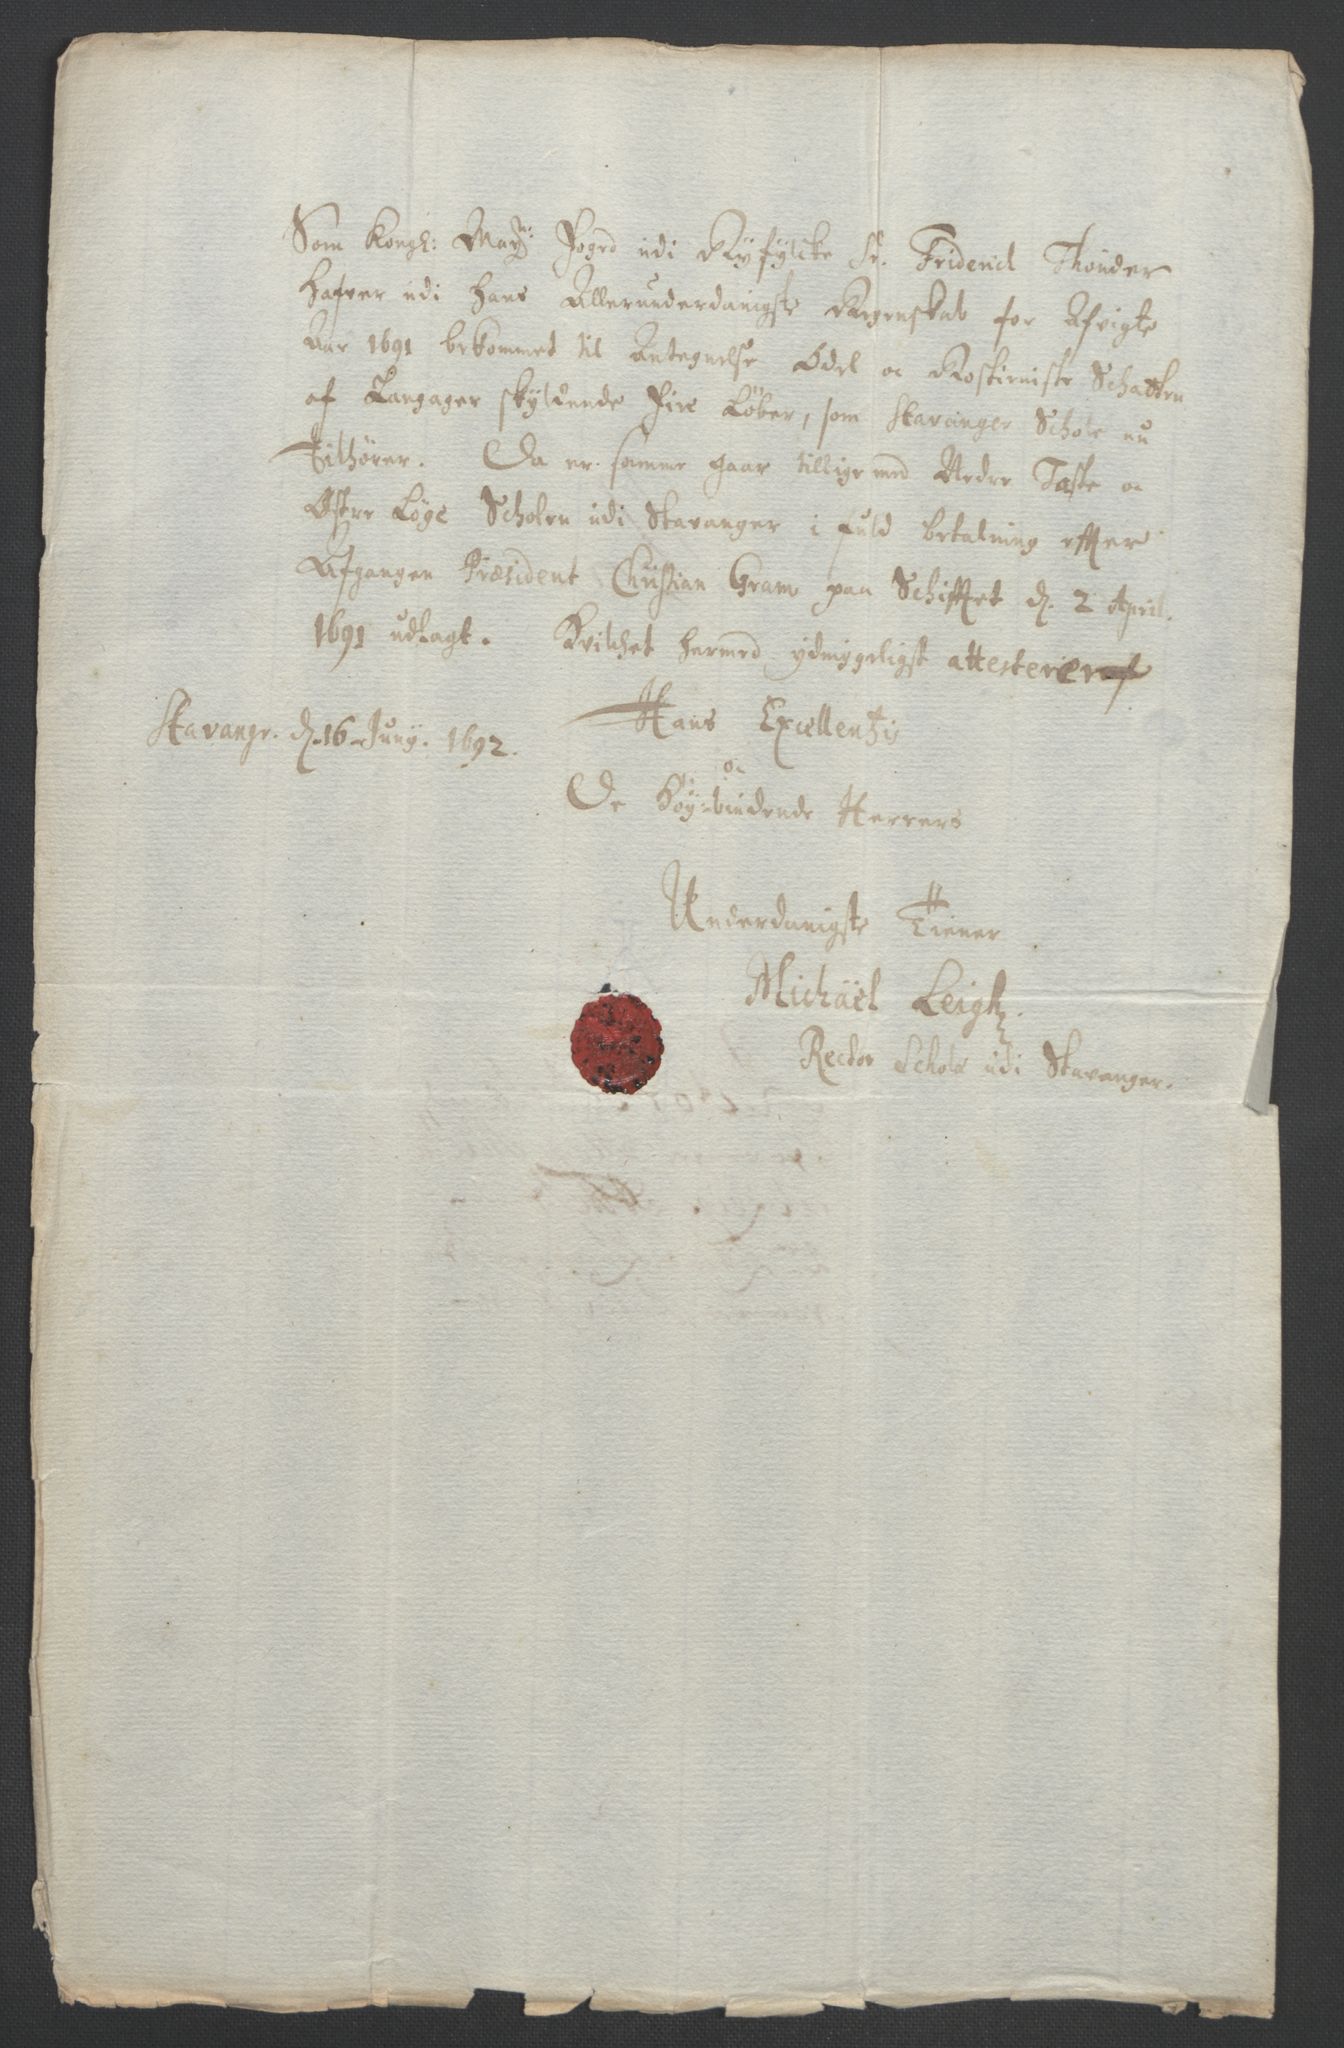 Som Kongl: Mayts: Fogd udi Ryfylcke Sr. Friderich Thonder
hafver udi hans Allerunderdanigste Regenskab for Afvigte
Aar 1691 bekommet til Antegnelse Odel oc Rostieniste Schatten
af Langager skyldende fire Løber, som Stavanger Schole nu
Tilhører. Da er samme gaar tillige med Nedre Taste oc
Østre Løge Scholen udi Stavanger i fuld betalning efter
Afgangen Præsident Christian Gram paa Schifftet d. 2 April.
1691 udlagt. Hvilchet hermed ydmygeligst attesterer
Stavangr. d. 16 Juny. 1692.
Hans Excellentz
oc
De Høy-biudende Herrers
Underdanigste Tiener
Michäel Leigh.
Rector Schole udi Stavanger.